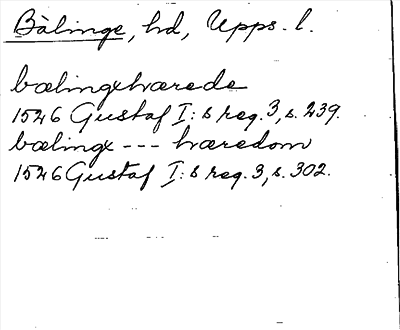 Bälinge, hd, Upps. l.
bælingxhærede
1526 Gustaf I: s reg. 3, s. 239.
bælingx --- hæredom
1526 Gustaf I: s reg. 3, s. 302.